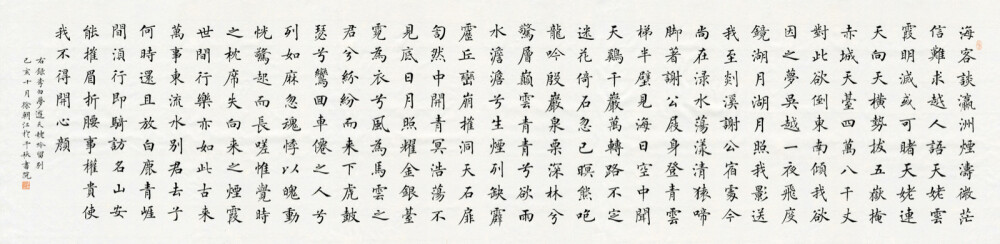 海客談瀛洲煙濤微茫
信難求越人語天姥雲
霞明滅或可睹天姥連
天向天橫勢拔五嶽掩
赤城天臺四萬八千丈
對此欲倒東南傾我欲
因之夢吳越一夜飛度
鏡湖月湖月照我影送
我至剡溪謝公宿處今
尚在淥水蕩漾清猿啼
腳著謝公屐身登青雲
梯半壁見海日空中聞
天雞千巖萬轉路不定
迷花倚石忽已暝熊咆
龍吟殷巖泉慄深林兮
驚層巔雲青青兮欲雨
水澹澹兮生煙列缺霹
靂丘巒崩摧洞天石扉
訇然中開青冥浩蕩不
見底日月照耀金銀臺
霓為衣兮風為馬雲之
君兮紛紛而來下虎鼓
瑟兮鸞回車僊之人兮
列如麻忽魂悸以魄動
怳驚起而長嗟惟覺時
之枕席失向來之煙霞
世間行樂亦如此古來
萬事東流水別君去兮
何時還且放白鹿青崖
間須行即騎訪名山安
能摧眉折腰事權貴使
我不得開心顏
右錄李白夢遊天姥吟留別
己亥十月徐朝江於千秋書院